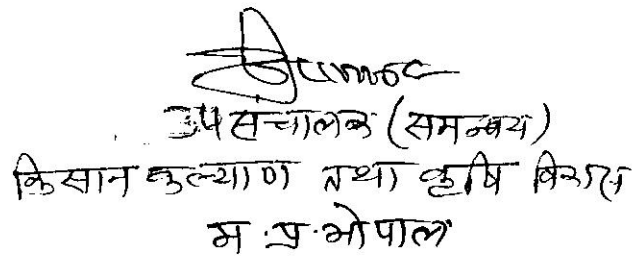 उपसंचालक (समन्वय)
किसान कल्याण तथा कृषि विकास
म.प्र.भोपाल